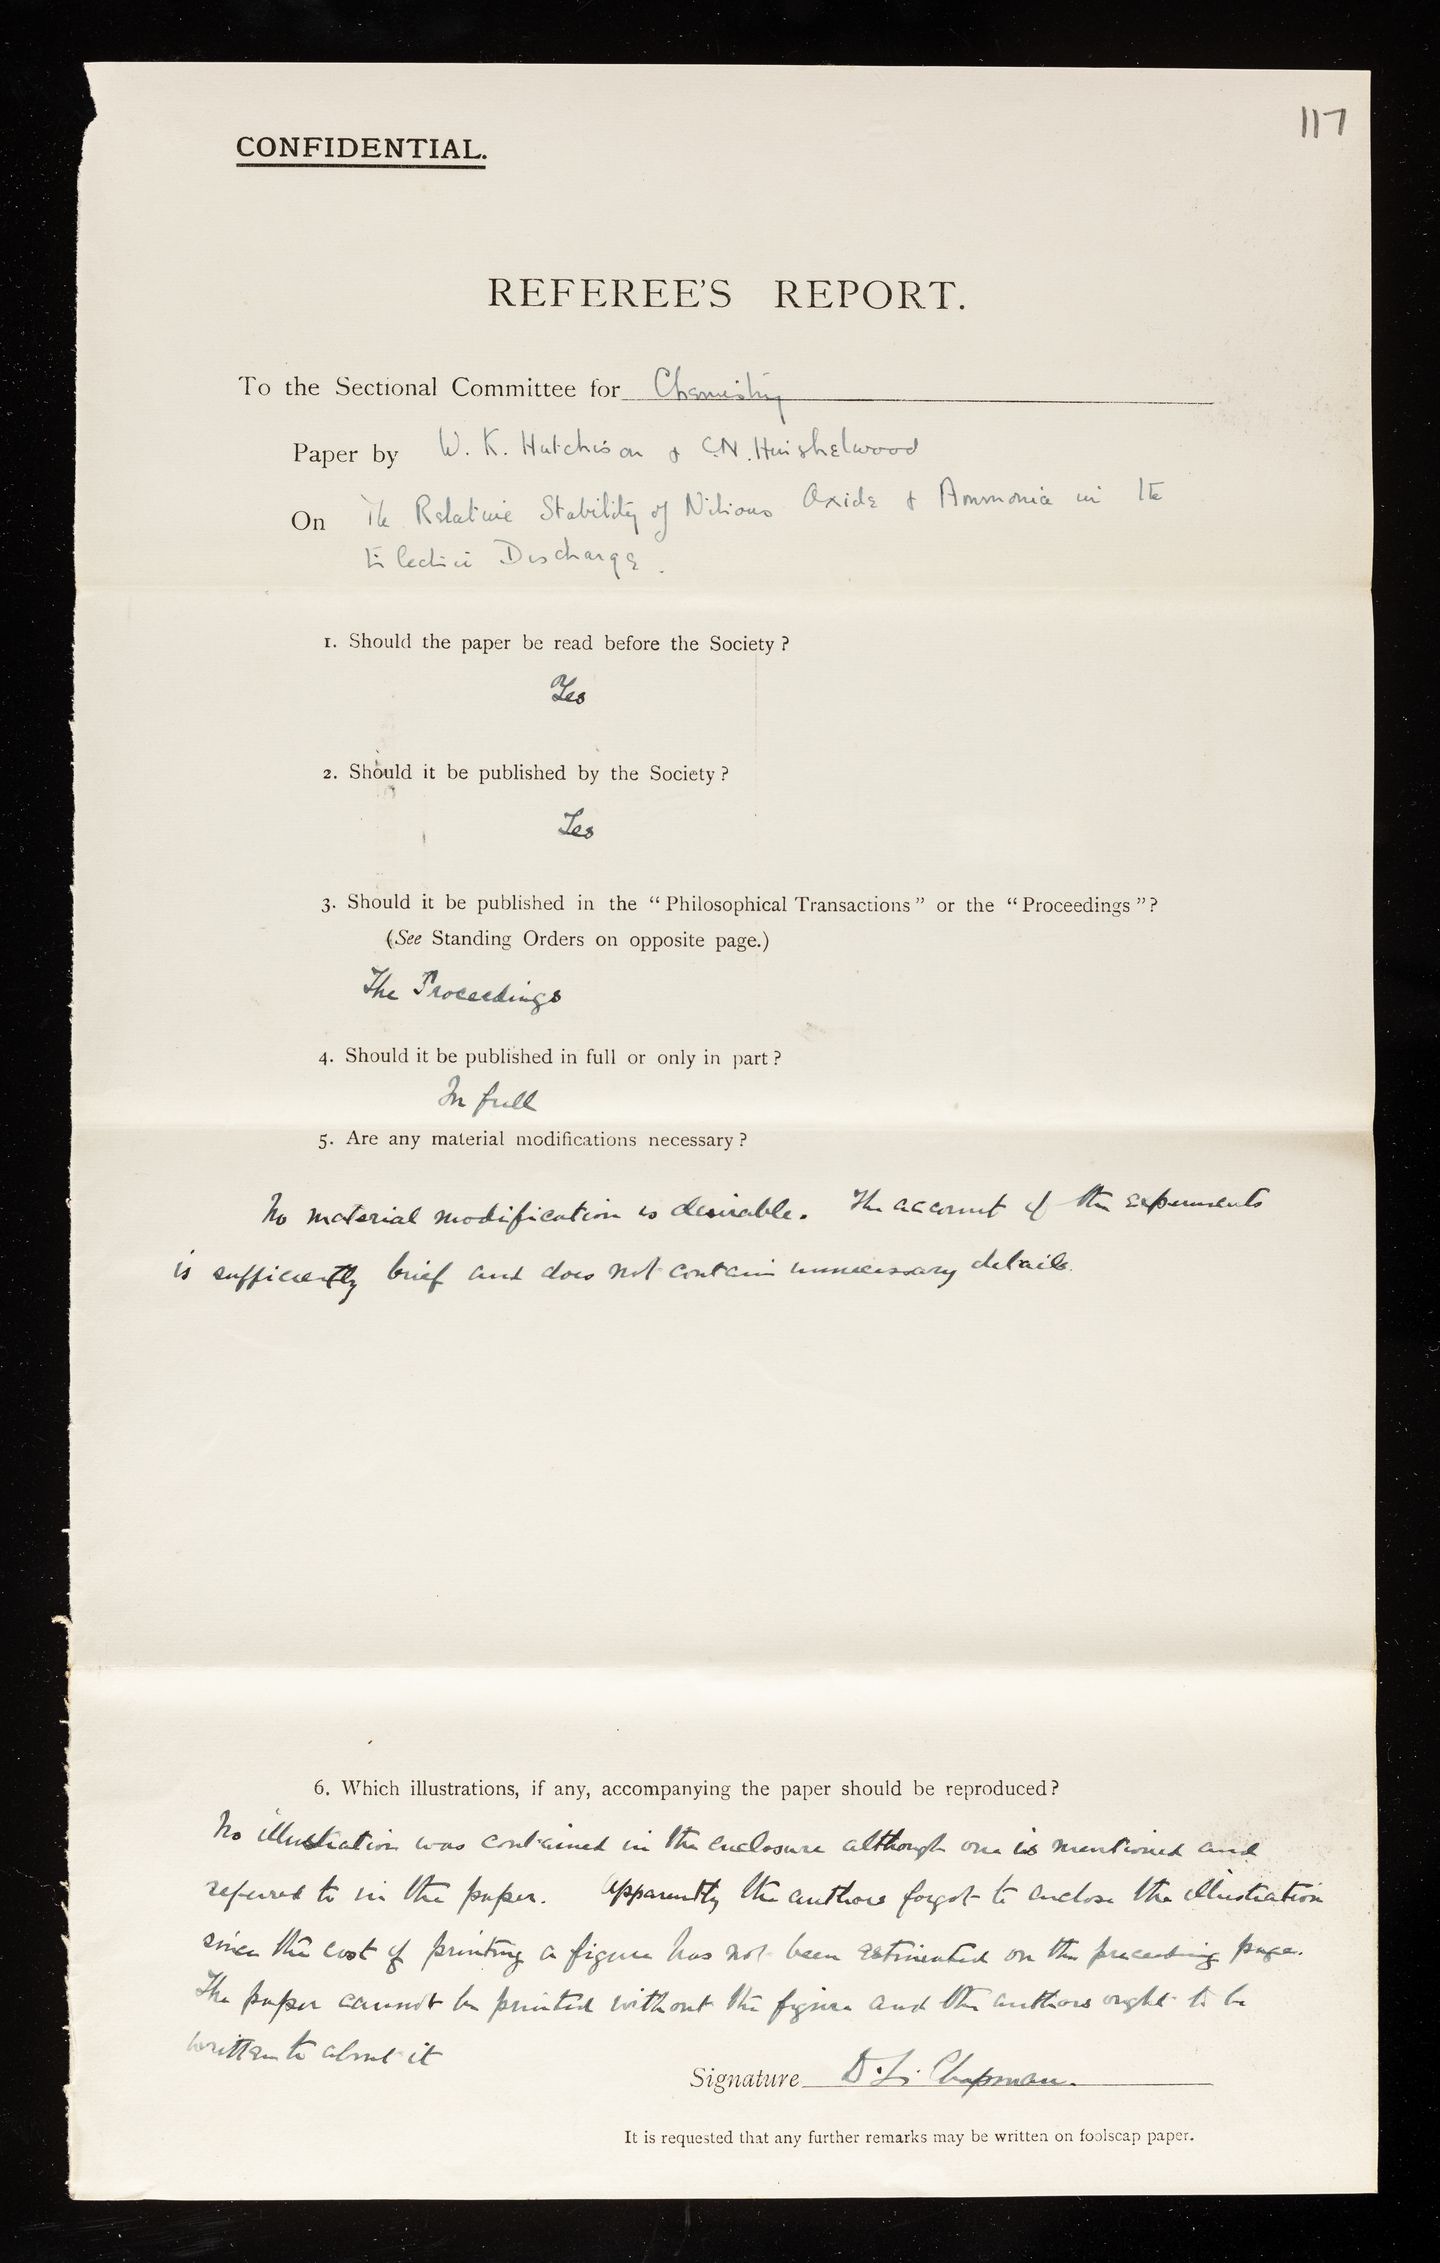 117
CONFIDENTIAL.
REFEREE'S REPORT.
To the Sectional Committee for Chemistry
Paper by W. K. Hutchison & C.N. Hinshelwood
On The Relative Stability of Nitrous Oxide & Ammonia in the
Electric Discharge.
1. Should the paper be read before the Society?
Yes
2. Should it be published by the Society?
Yes
3. Should it be published in the "Philosophical Transactions" or the "Proceedings"?
(See Standing Orders on opposite page.)
The Proceedings
4. Should it be published in full or only in part?
In full
5. Are any material modifications necessary?
No material modification is desirable. The account of the experiments
is sufficiently brief and does not contain unnecessary details.
6. Which illustrations, if any, accompanying the paper should be reproduced?
No illustration was contained in the enclosure although one is mentioned and
referred to in the paper. Apparently the authors forgot to enclose the illustration
since the cost of printing a figure has not been estimated on the preceeding page.
The paper cannot be printed without the figure and the authors ought to be
written to about it
Signature D. L. Chapman.
It is requested that any further remarks may be written on foolscap paper.